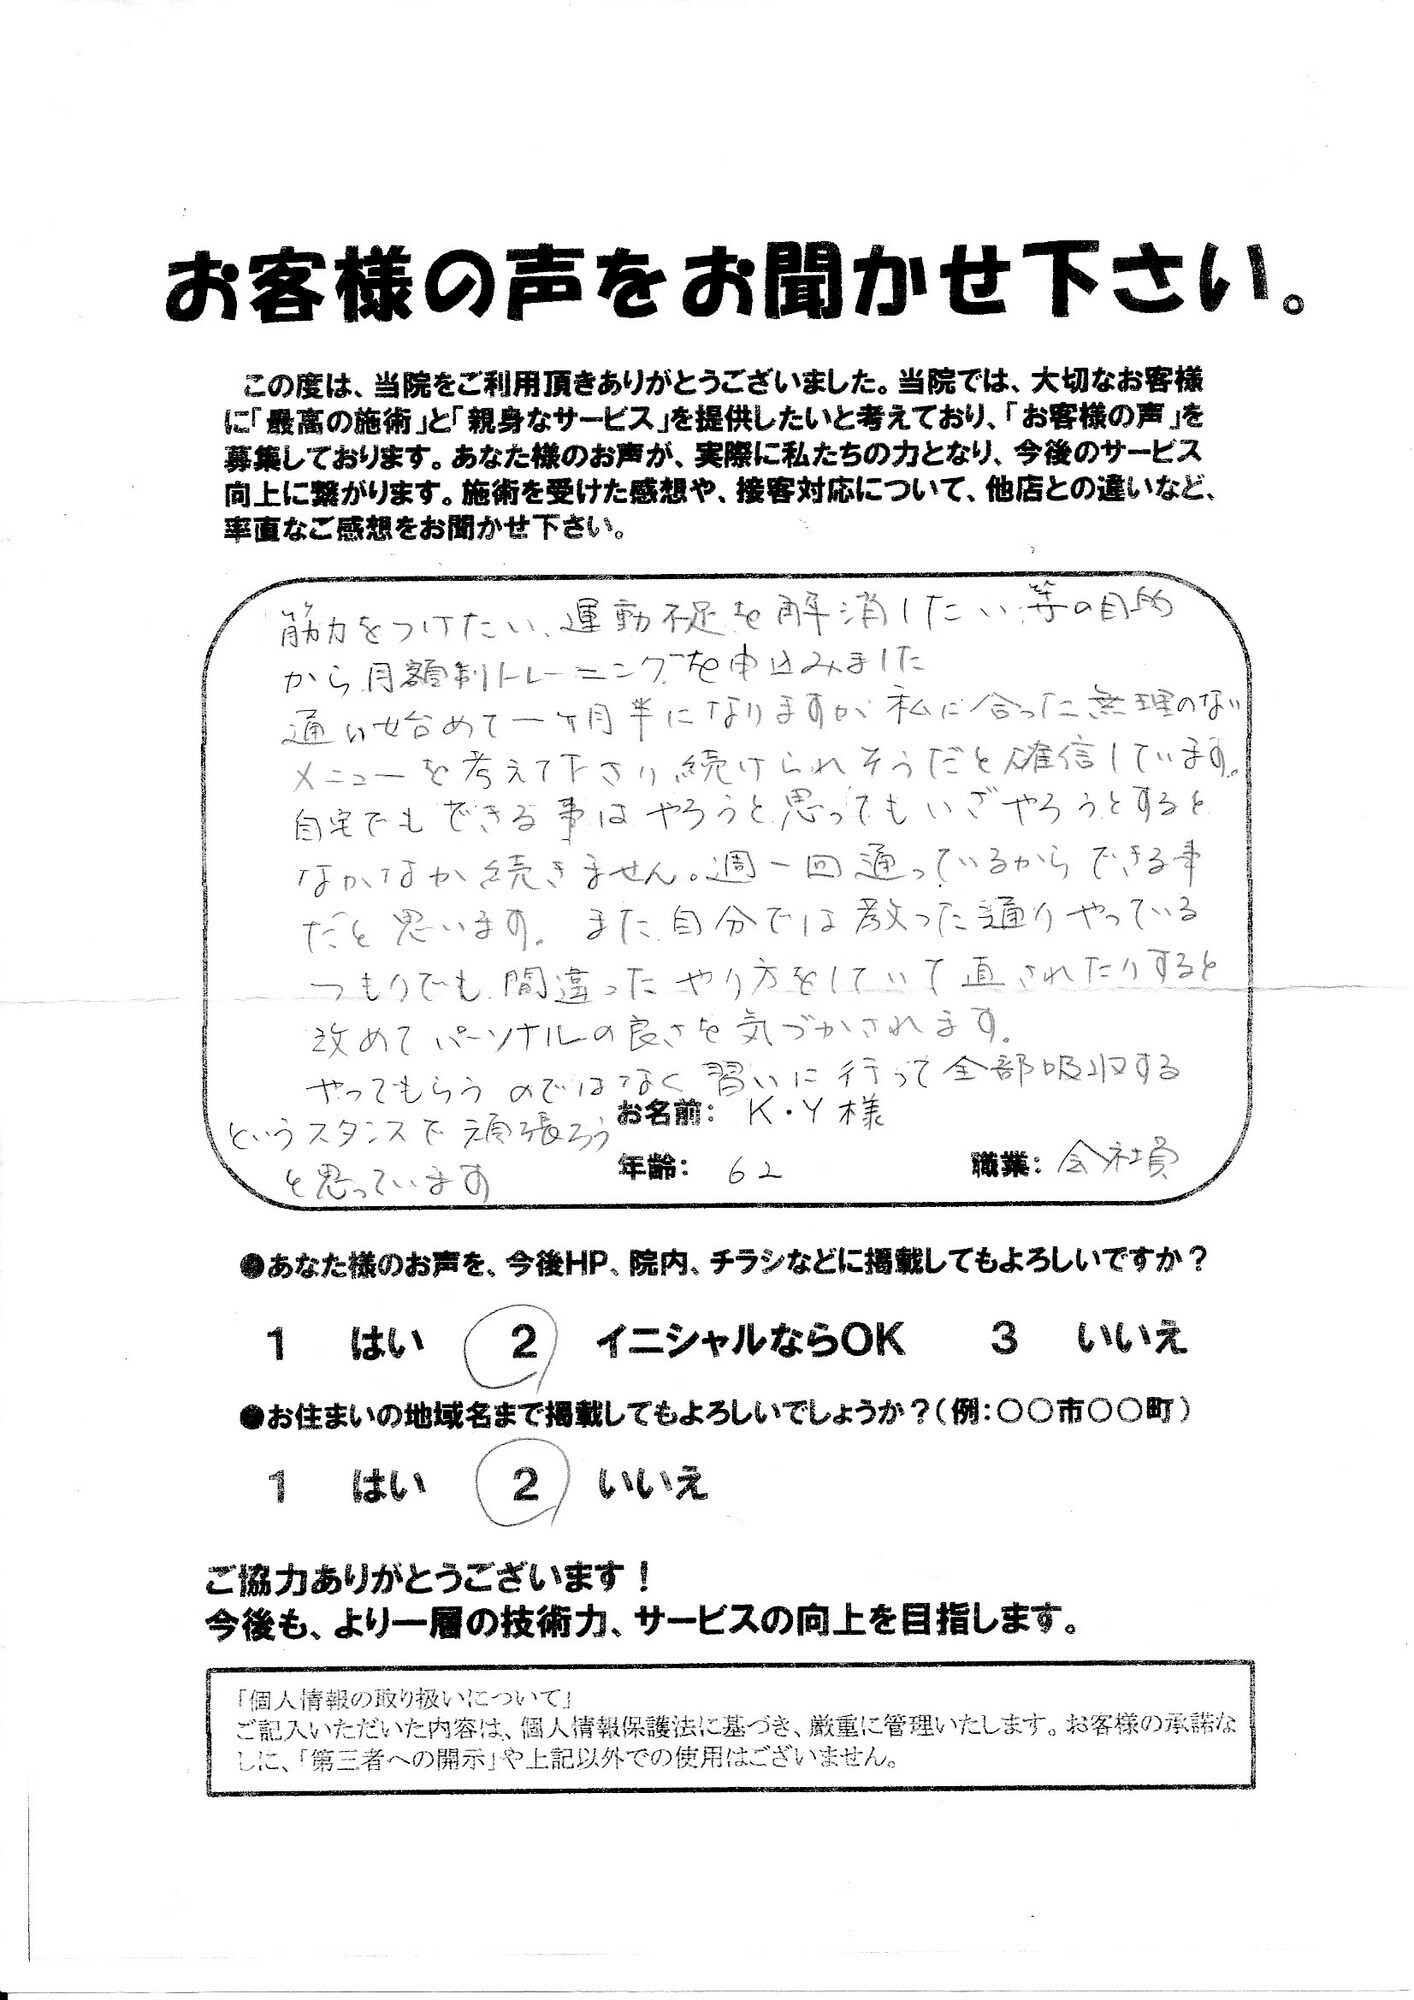 お客様の声をお聞かせ下さい。
この度は、当院をご利用頂きありがとうございました。当院では、大切なお客様
に「最高の施術」と「親身なサービス」を提供したいと考えており、「お客様の声」を
募集しております。あなた様のお声が、実際に私たちの力となり、今後のサービス
向上に繋がります。施術を受けた感想や、接客対応について、他店との違いなど、
率直なご感想をお聞かせ下さい。
筋力をつけたい、運動不足を解消したい等の目的
から月額制トレーニングを申込みました
通い始めて一ヶ月半になりますが私に合った無理のない
メニューを考えて下さり続けられそうだと確信しています。
自宅でもできる事はやろうと思ってもいざやろうとすると
なかなか続きません。週一回通っているからできる事
だと思います。また自分では教った通りやっている
つもりでも間違ったやり方をしていて直されたりすると
改めてパーソナルの良さを気づかされます。
やってもらうのではなく習いに行って全部吸収する
というスタンスで頑張ろう
と思っています
お名前: K・Y様
年齢: 62 職業: 会社員
●あなた様のお声を、今後HP、院内、チラシなどに掲載してもよろしいですか？
1 はい 2 イニシャルならOK 3 いいえ
●お住まいの地域名まで掲載してもよろしいでしょうか？（例：○○市○○町）
1 はい 2 いいえ
ご協力ありがとうございます！
今後も、より一層の技術力、サービスの向上を目指します。
「個人情報の取り扱いについて」
ご記入いただいた内容は、個人情報保護法に基づき、厳重に管理いたします。お客様の承諾な
しに、「第三者への開示」や上記以外での使用はございません。